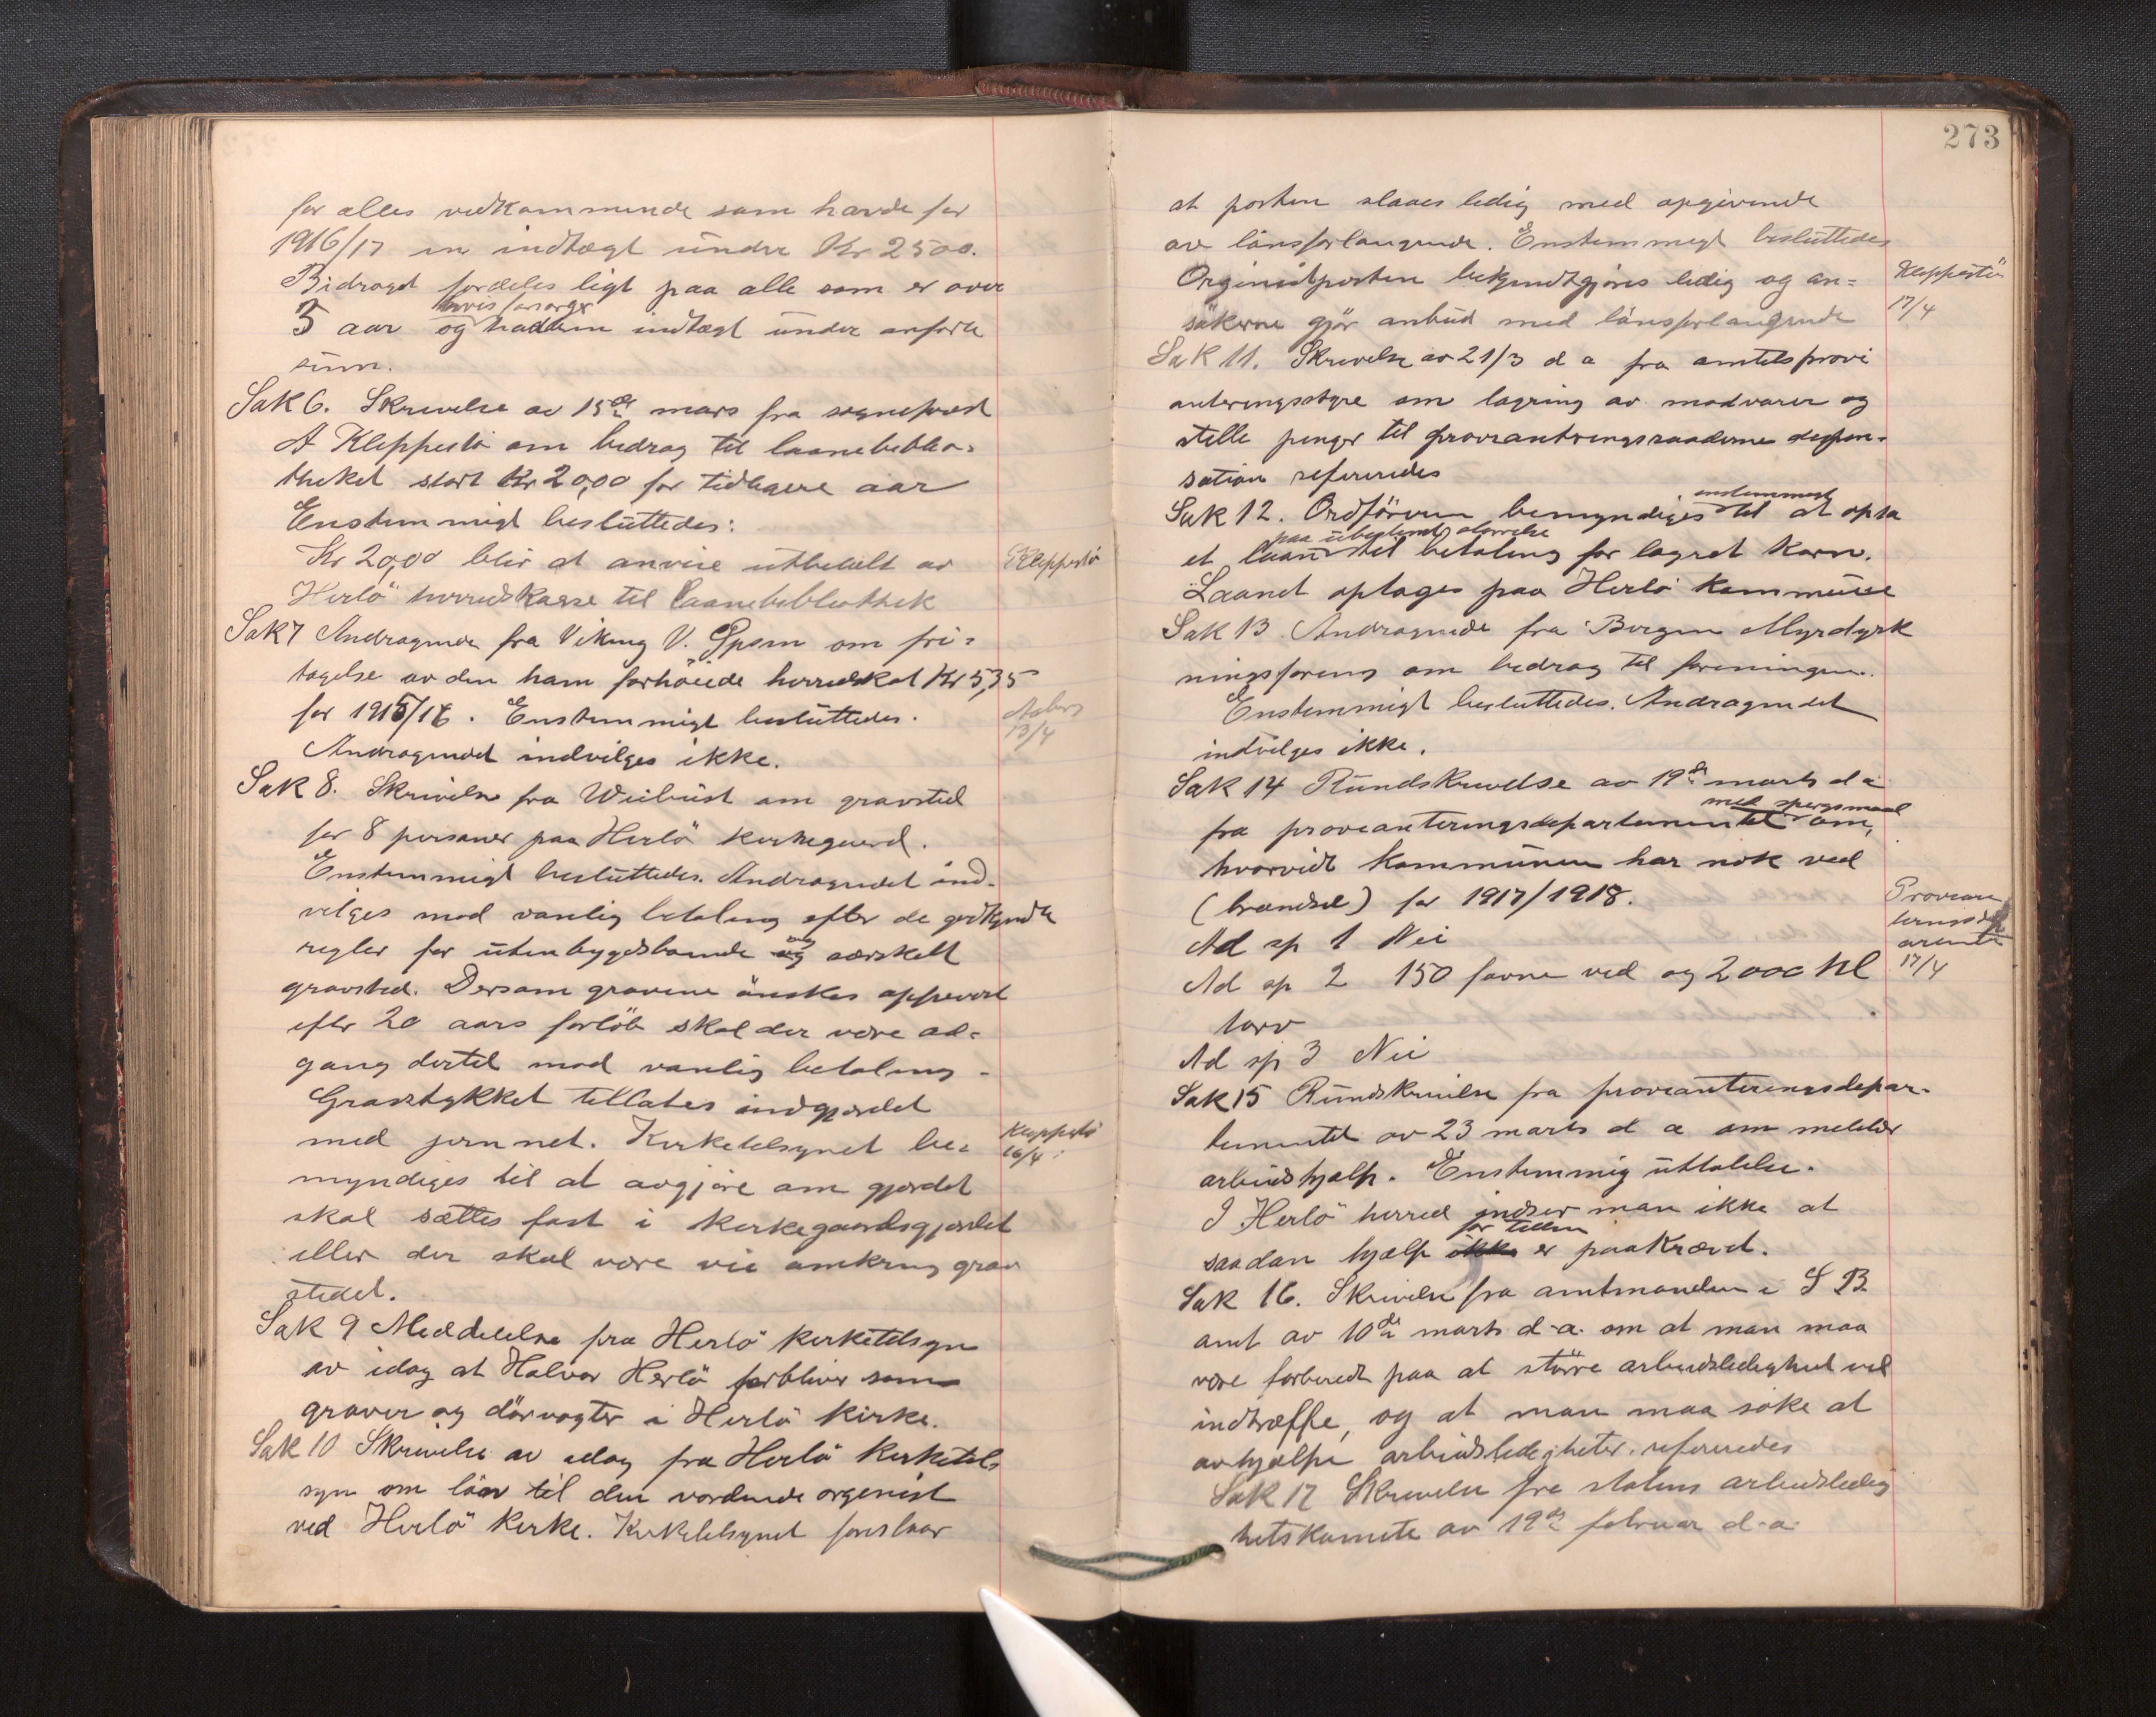 for alles vedkommende som havde for
1916/17 en indtægt under Kr 2500.
Bidraget fordeles ligt paa alle som er over
5 aar og hvis forsørger hadde en indtægt under anførte
sum.
Sak 6. Skrivelse av 15de mars fra sogneprest
A Kleppestö om bedrag til laanebiblio-
theket stort Kr 20,00 for tidligere aar
Enstemmigt besluttedes:
Kr 20,00 blir at anvise utbetalt av
Herlö herredskasse til Laanebibliothek
Kleppestö
Sak 7 Andragende fra Viking V. om fri-
tagelse av den ham forhöiede herredskat Kr 5,35
for 1915/16. Enstemmigt besluttedes.
Andragendet indvilges ikke.
13/4
Sak 8. Skrivelse fra Weibust om gravsted
for 8 personer paa Herlö kirkegaard.
Enstemmigt besluttedes. Andragendet ind-
vilges mod vanlig betaling efter de godkjendte
regler for utenbygdsboende og særskilt
gravsted. Dersom gravene önskes oppevart
efter 20 aars forlöb skal der være ad-
gang dertil mod vanlig betaling.
Gravstykket tillates indgjerdet
med jernnet. Kirketilsynet be-
myndiges til at avgjöre om gjerdet
skal sættes fast i kirkegaardsgjerdet
eller der skal være vei omkring grav
stedet.
Kleppestö
16/4
Sak 9 Meddelelse fra Herlö kirketilsyn
av idag at Halvor Herlö forbliver som
graver og dörvogter i Herlö kirke.
Sak 10 Skrivelse av idag fra Herlö kirketil-
syn om lön til den vordende orgenist
ved Herlö kirke. Kirketilsynet foreslaar
273
at posten slaaes ledig med opgivende
av lönsforlangende. Enstemmigt besluttedes
Orginistposten bekjendtgjöres ledig og an-
sökerne gjör anbud med lönsforlangende
Kleppestö
17/4
Sak 11. Skrivelse av 21/3 d a fra amtets provi
anteringsstyre om lagring av madvarer og
stille penger til provianteringsraadene dispon-
sation refereredes
Sak 12. Ordföreren bemyndiges enstemmigt til at opta
et laan paa ubestemt störrelse til betaling for lagret korn.
Laanet optages paa Herlö kommune
Sak 13. Andragende fra Bergen Myrdyrk
ningsforening om bedrag til foreningen.
Enstemmigt besluttedes. Andragendet
indvilges ikke.
Sak 14 Rundskrivelse av 19de marts d a
fra provianteringsdepartementet med spørsmaal om,
hvorvidt kommunen har nok ved
(brændsel) for 1917/1918.
Ad sp 1 Nei
Ad sp 2 150 favne ved og 2000 hl
torv
Ad sp 3 Nei
Provian
teringsdep
17/4
Sak 15 Rundskrivelse fra provianteringsdepar-
tementet av 23 marts d a om
arbeidshjælp. Enstemmig uttalelse.
I Herlö herred indser man ikke at
saadan hjælp for tiden er paakrævet.
Sak 16. Skrivelse fra amtmanden i S B
amt av 10de marts d-a. om at man maa
være forberedt paa at större arbeidsledighet vil
indtræffe, og at man maa söke at
avhjælpe arbeidsledigheter. refereredes
Sak 17 Skrivelse fra statens arbeidsledig
hetskomite av 19de februar d-a.